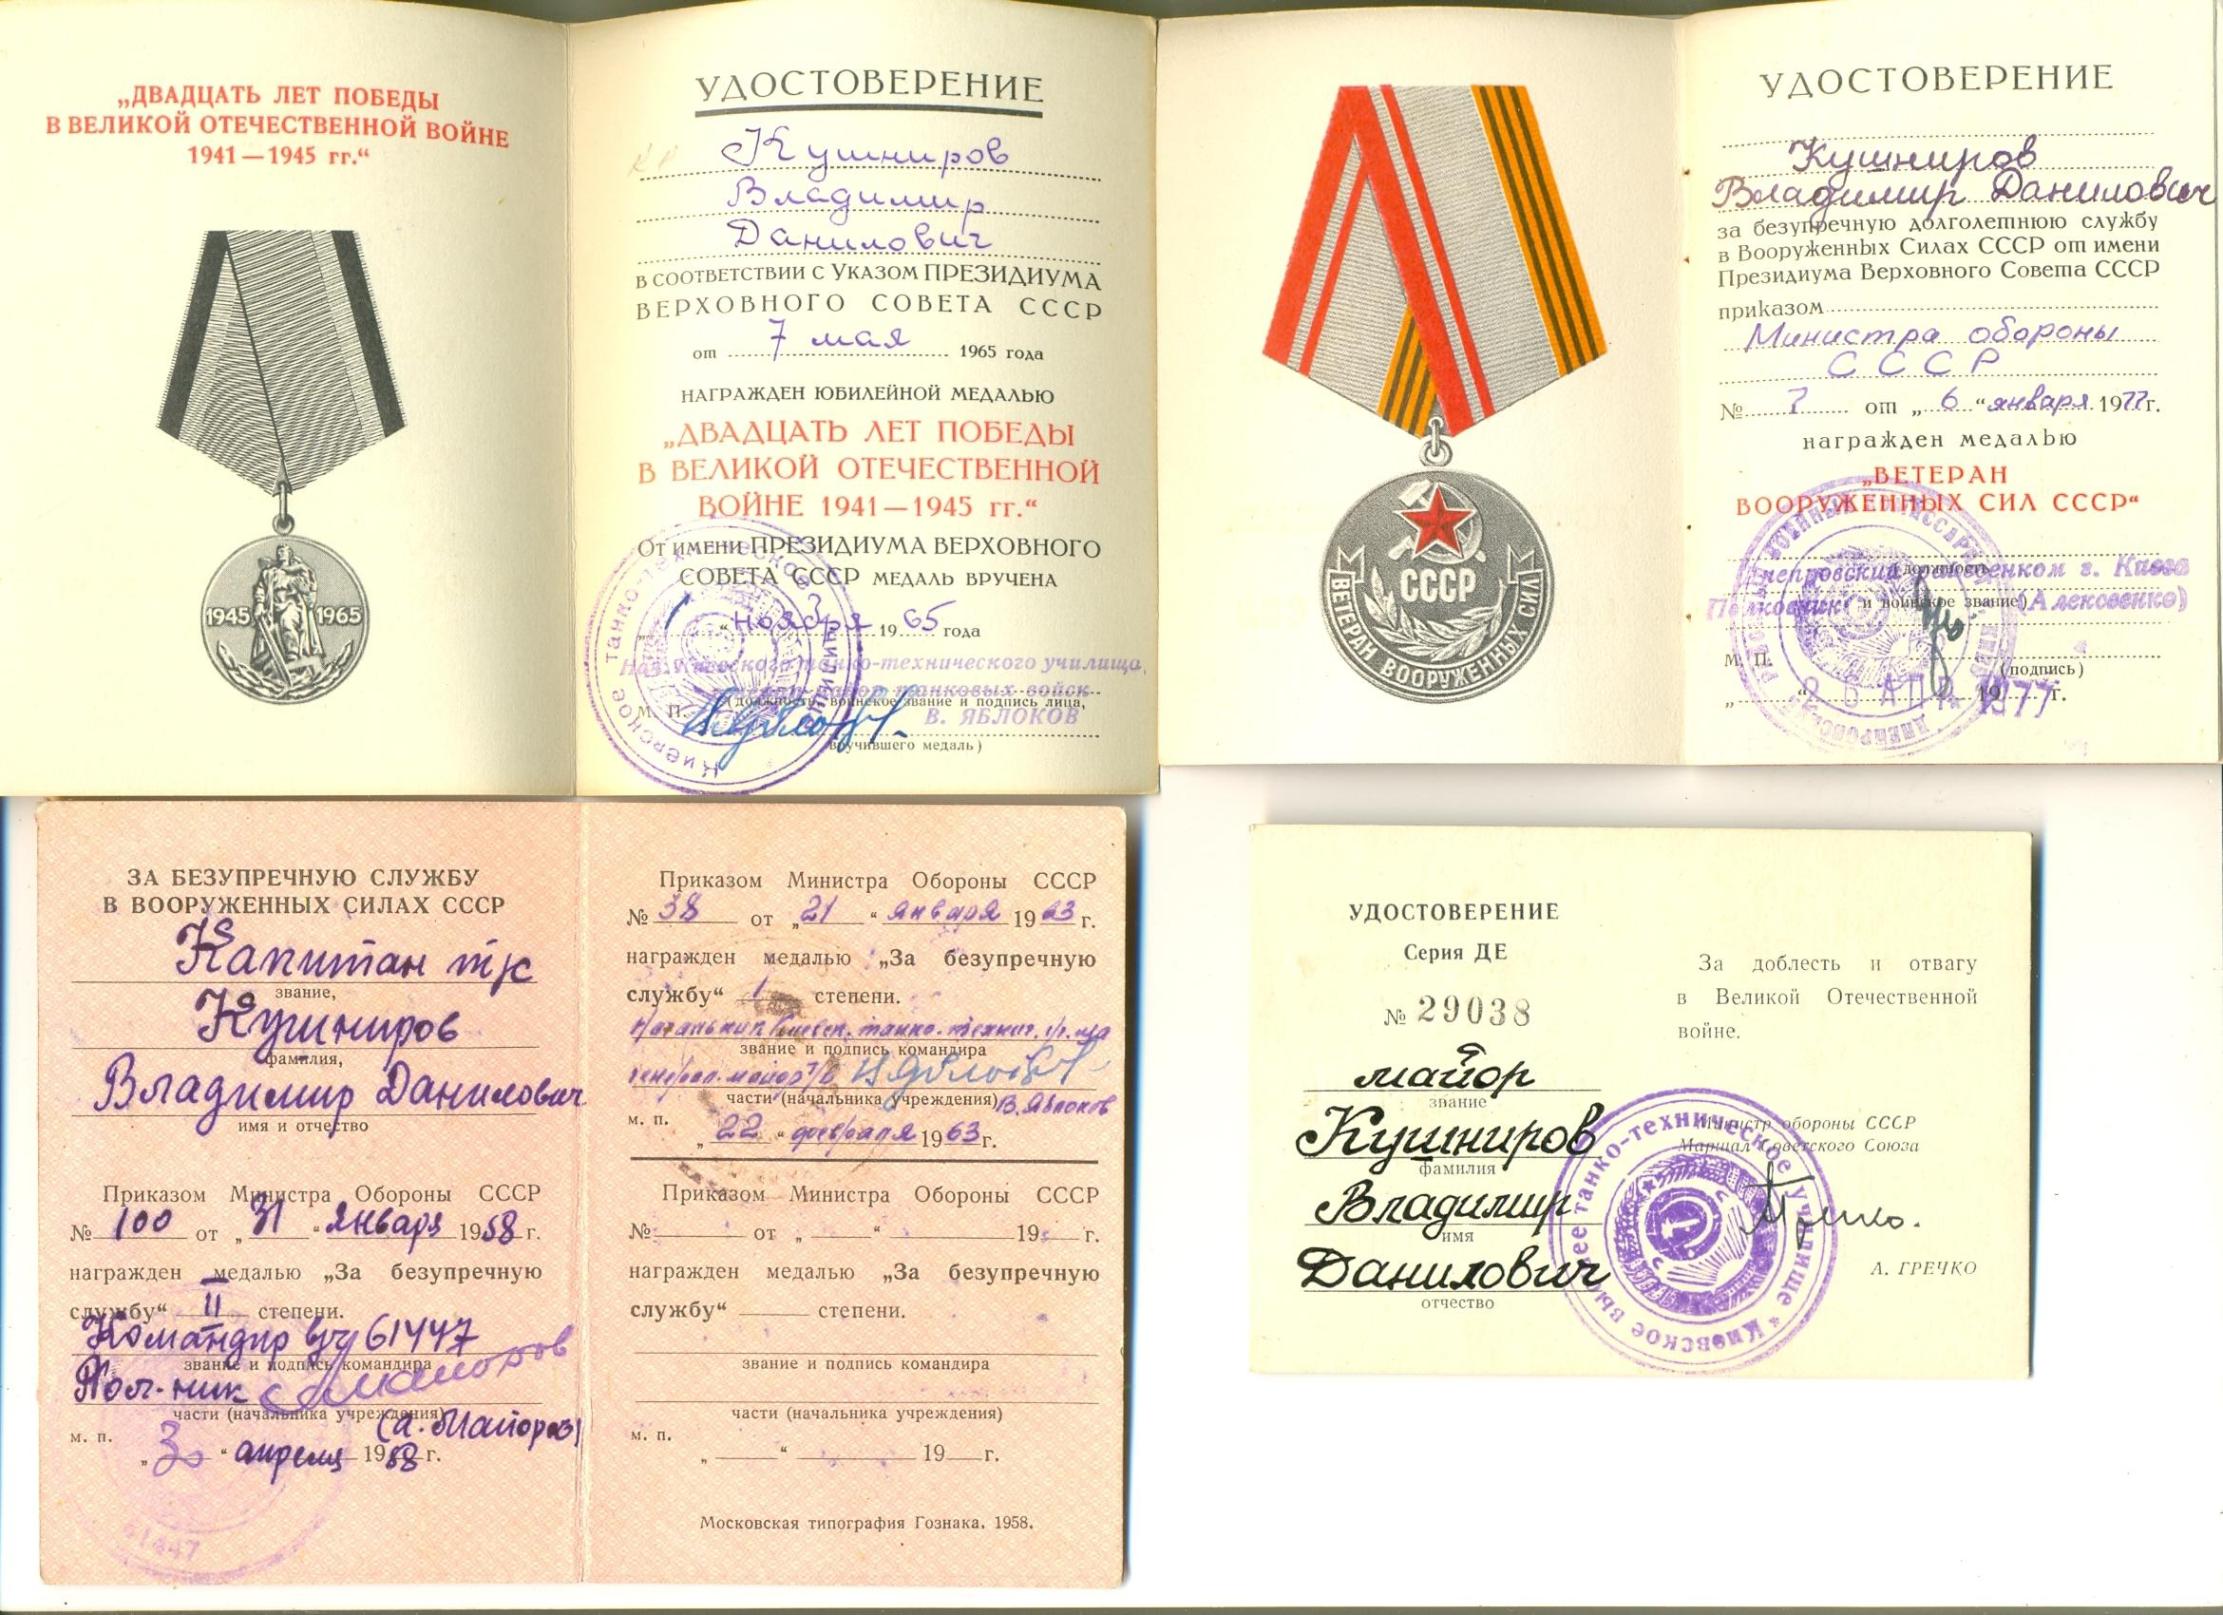 „ДВАДЦАТЬ ЛЕТ ПОБЕДЫ
В ВЕЛИКОЙ ОТЕЧЕСТВЕННОЙ ВОЙНЕ
1941—1945 гг.“
1945 1965
УДОСТОВЕРЕНИЕ
Кушниров
Владимир
Данилович
В СООТВЕТСТВИИ С УКАЗОМ ПРЕЗИДИУМА
ВЕРХОВНОГО СОВЕТА СССР
от 7 мая 1965 года
НАГРАЖДЕН ЮБИЛЕЙНОЙ МЕДАЛЬЮ
„ДВАДЦАТЬ ЛЕТ ПОБЕДЫ
В ВЕЛИКОЙ ОТЕЧЕСТВЕННОЙ
ВОЙНЕ 1941—1945 гг.“
ОТ ИМЕНИ ПРЕЗИДИУМА ВЕРХОВНОГО
СОВЕТА СССР МЕДАЛЬ ВРУЧЕНА
„1“ ноября 1965 года
Нач. Киевского танко-технического училища,
генерал-майор танковых войск
М. П. (должность, воинское звание и подпись лица,
В. ЯБЛОКОВ
вручившего медаль)
Киевское танко-техническое училище
СССР
ВЕТЕРАН ВООРУЖЕННЫХ СИЛ
УДОСТОВЕРЕНИЕ
Кушниров
Владимир Данилович
за безупречную долголетнюю службу
в Вооруженных Силах СССР от имени
Президиума Верховного Совета СССР
приказом
Министра обороны
СССР
№ 7 от „6“ января 1977г.
награжден медалью
„ВЕТЕРАН
ВООРУЖЕННЫХ СИЛ СССР“
Днепровский райвоенком г. Киева
(должность
Полковник и воинское звание) (Алексеенко)
М. П.
(подпись)
„26 АПР 1977 г.
ЗА БЕЗУПРЕЧНУЮ СЛУЖБУ
В ВООРУЖЕННЫХ СИЛАХ СССР
Капитан т/с
звание,
Кушниров
фамилия,
Владимир Данилович
имя и отчество
Приказом Министра Обороны СССР
№ 100 от „31“ января 1958 г.
награжден медалью „За безупречную
службу“ II степени.
Командир в/ч 61447
звание и подпись командира
Пол-ник
части (начальника учреждения)
(А. Майоров)
м. п.
„30“ апреля 1958 г.
61447
Приказом Министра Обороны СССР
№ 38 от „21“ января 1963 г.
награжден медалью „За безупречную
службу“ I степени.
Начальник Киевск. танко-технич. уч-ща
звание и подпись командира
генерал-майор т/в
части (начальника учреждения) В. Яблоков
м. п.
„22“ февраля 1963 г.
Приказом Министра Обороны СССР
№ от „ “ 19 г.
награжден медалью „За безупречную
службу“ степени.
звание и подпись командира
части (начальника учреждения)
м. п.
„ “ 19 г.
Московская типография Гознака. 1958.
УДОСТОВЕРЕНИЕ
Серия ДЕ
№ 29038
майор
звание
Кушниров
фамилия
Владимир
имя
Данилович
отчество
За доблесть и отвагу
в Великой Отечественной
войне.
Министр обороны СССР
Маршал Советского Союза
А. ГРЕЧКО
Киевское высшее танко-техническое училище